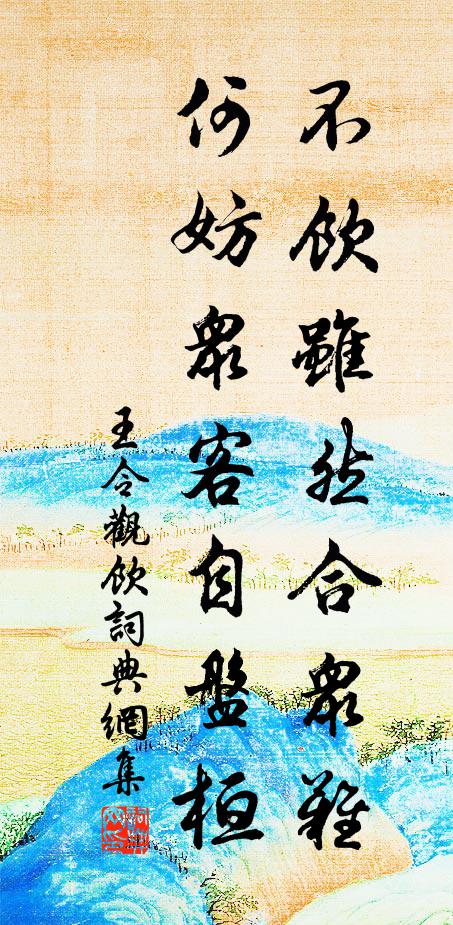 不飲雖然合衆難
何妨衆客自盤桓
王令觀飲詞典網集